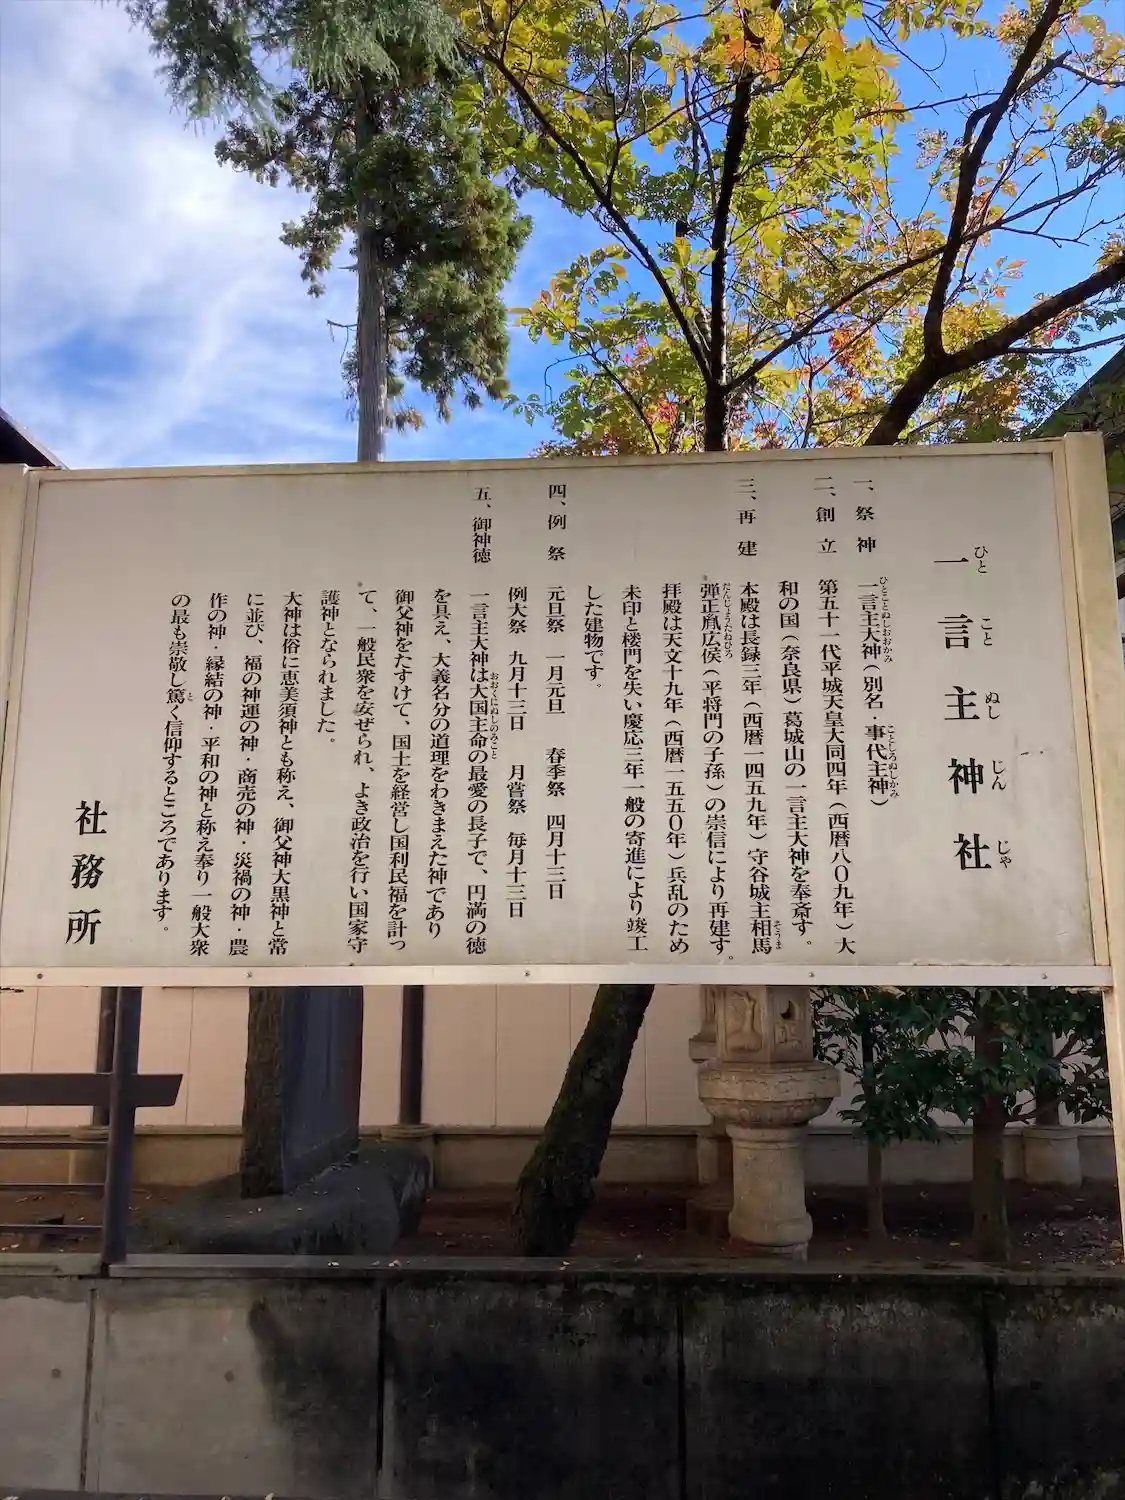 一言主神社
ひとことぬしじんじゃ
一、祭神
一言主大神(別名・事代主神)
ひとことぬしおおかみ
ことしろぬしかみ
二、創立
第五十一代平城天皇大同四年(西暦八〇九年)大
和の国(奈良県)葛城山の一言主大神を奉斎す。
三、再建
本殿は長録三年(西暦一四五九年)守谷城主相馬
そうま
弾正胤広侯(平将門の子孫)の崇信により再建す。
だんじょうたねひろ
拝殿は天文十九年(西暦一五五〇年)兵乱のため
朱印と楼門を失い慶応三年一般の寄進により竣工
した建物です。
四、例祭
元旦祭 一月元旦 春季祭 四月十三日
例大祭 九月十三日 月嘗祭 毎月十三日
五、御神徳
一言主大神は大国主命の最愛の長子で、円満の徳
おおくにぬしのみこと
を具え、大義名分の道理をわきまえた神であり
御父神をたすけて、国土を経営し国利民福を計っ
て、一般民衆を安ぜられ、よき政治を行い国家守
護神となられました。
大神は俗に恵美須神とも称え、御父神大黒神と常
に並び、福の神運の神・商売の神・災禍の神・農
作の神・縁結の神・平和の神と称え奉り一般大衆
の最も崇敬し篤く信仰するところであります。
と
社務所